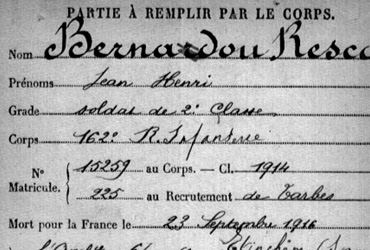 PARTIE À REMPLIR PAR LE CORPS.
Nom Bernardou Resca
Prénoms Jean Henri
Grade soldat de 2e Classe
Corps 162e R. Infanterie
No 15259 au Corps. — Cl. 1914
Matricule. 225 au Recrutement de Tarbes
Mort pour la France le 23 Septembre 1916